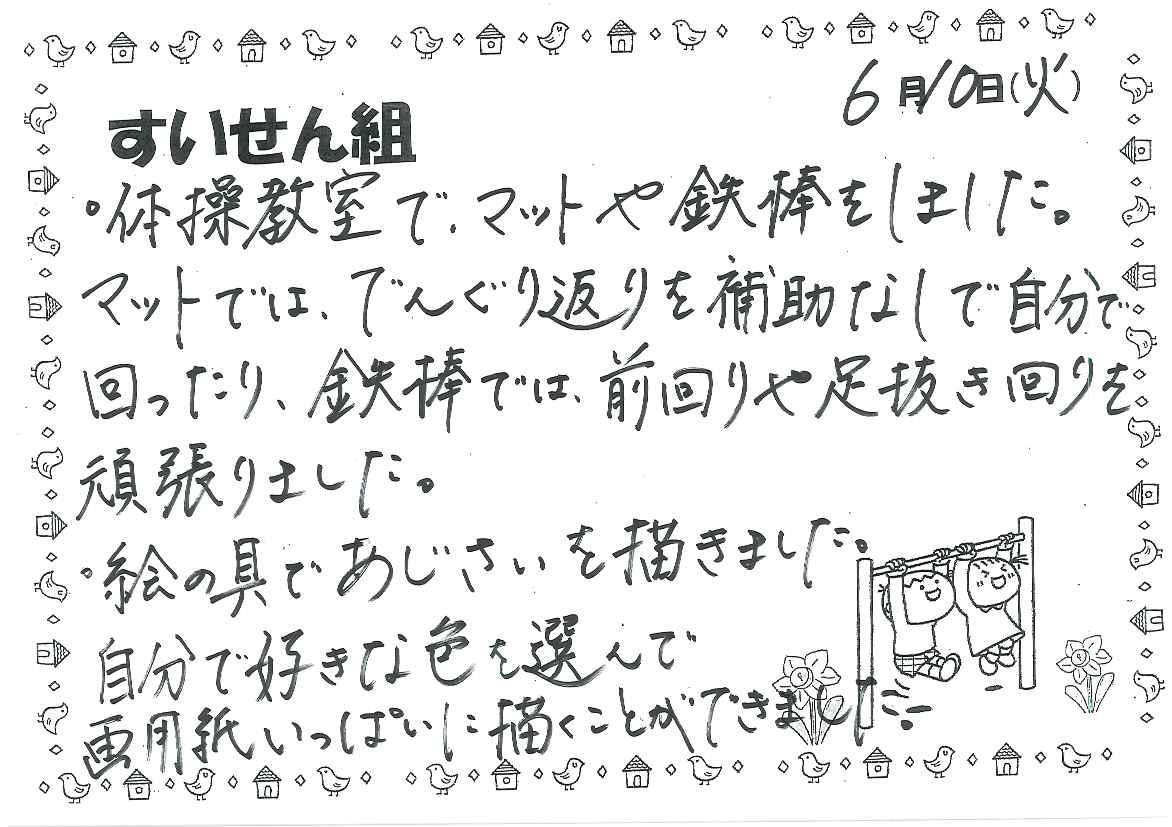 6月10日(火)
すいせん組
・体操教室で、マットや鉄棒をしました。
マットでは、でんぐり返りを補助なしで自分で
回ったり、鉄棒では、前回りや足抜き回りを
頑張りました。
・絵の具であじさいを描きました。
自分で好きな色を選んで
画用紙いっぱいに描くことができました。